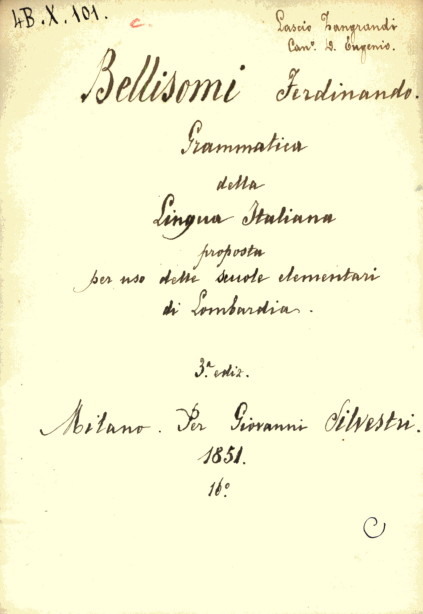 4B.X.101.
c.
Lascio Zangrandi
Can.º D. Eugenio.
Bellisomi Ferdinando.
Grammatica
della
Lingua Italiana
proposta
per uso delle scuole elementari
di Lombardia.
3.ª ediz.
Milano. Per Giovanni Silvestri.
1851.
16º
C